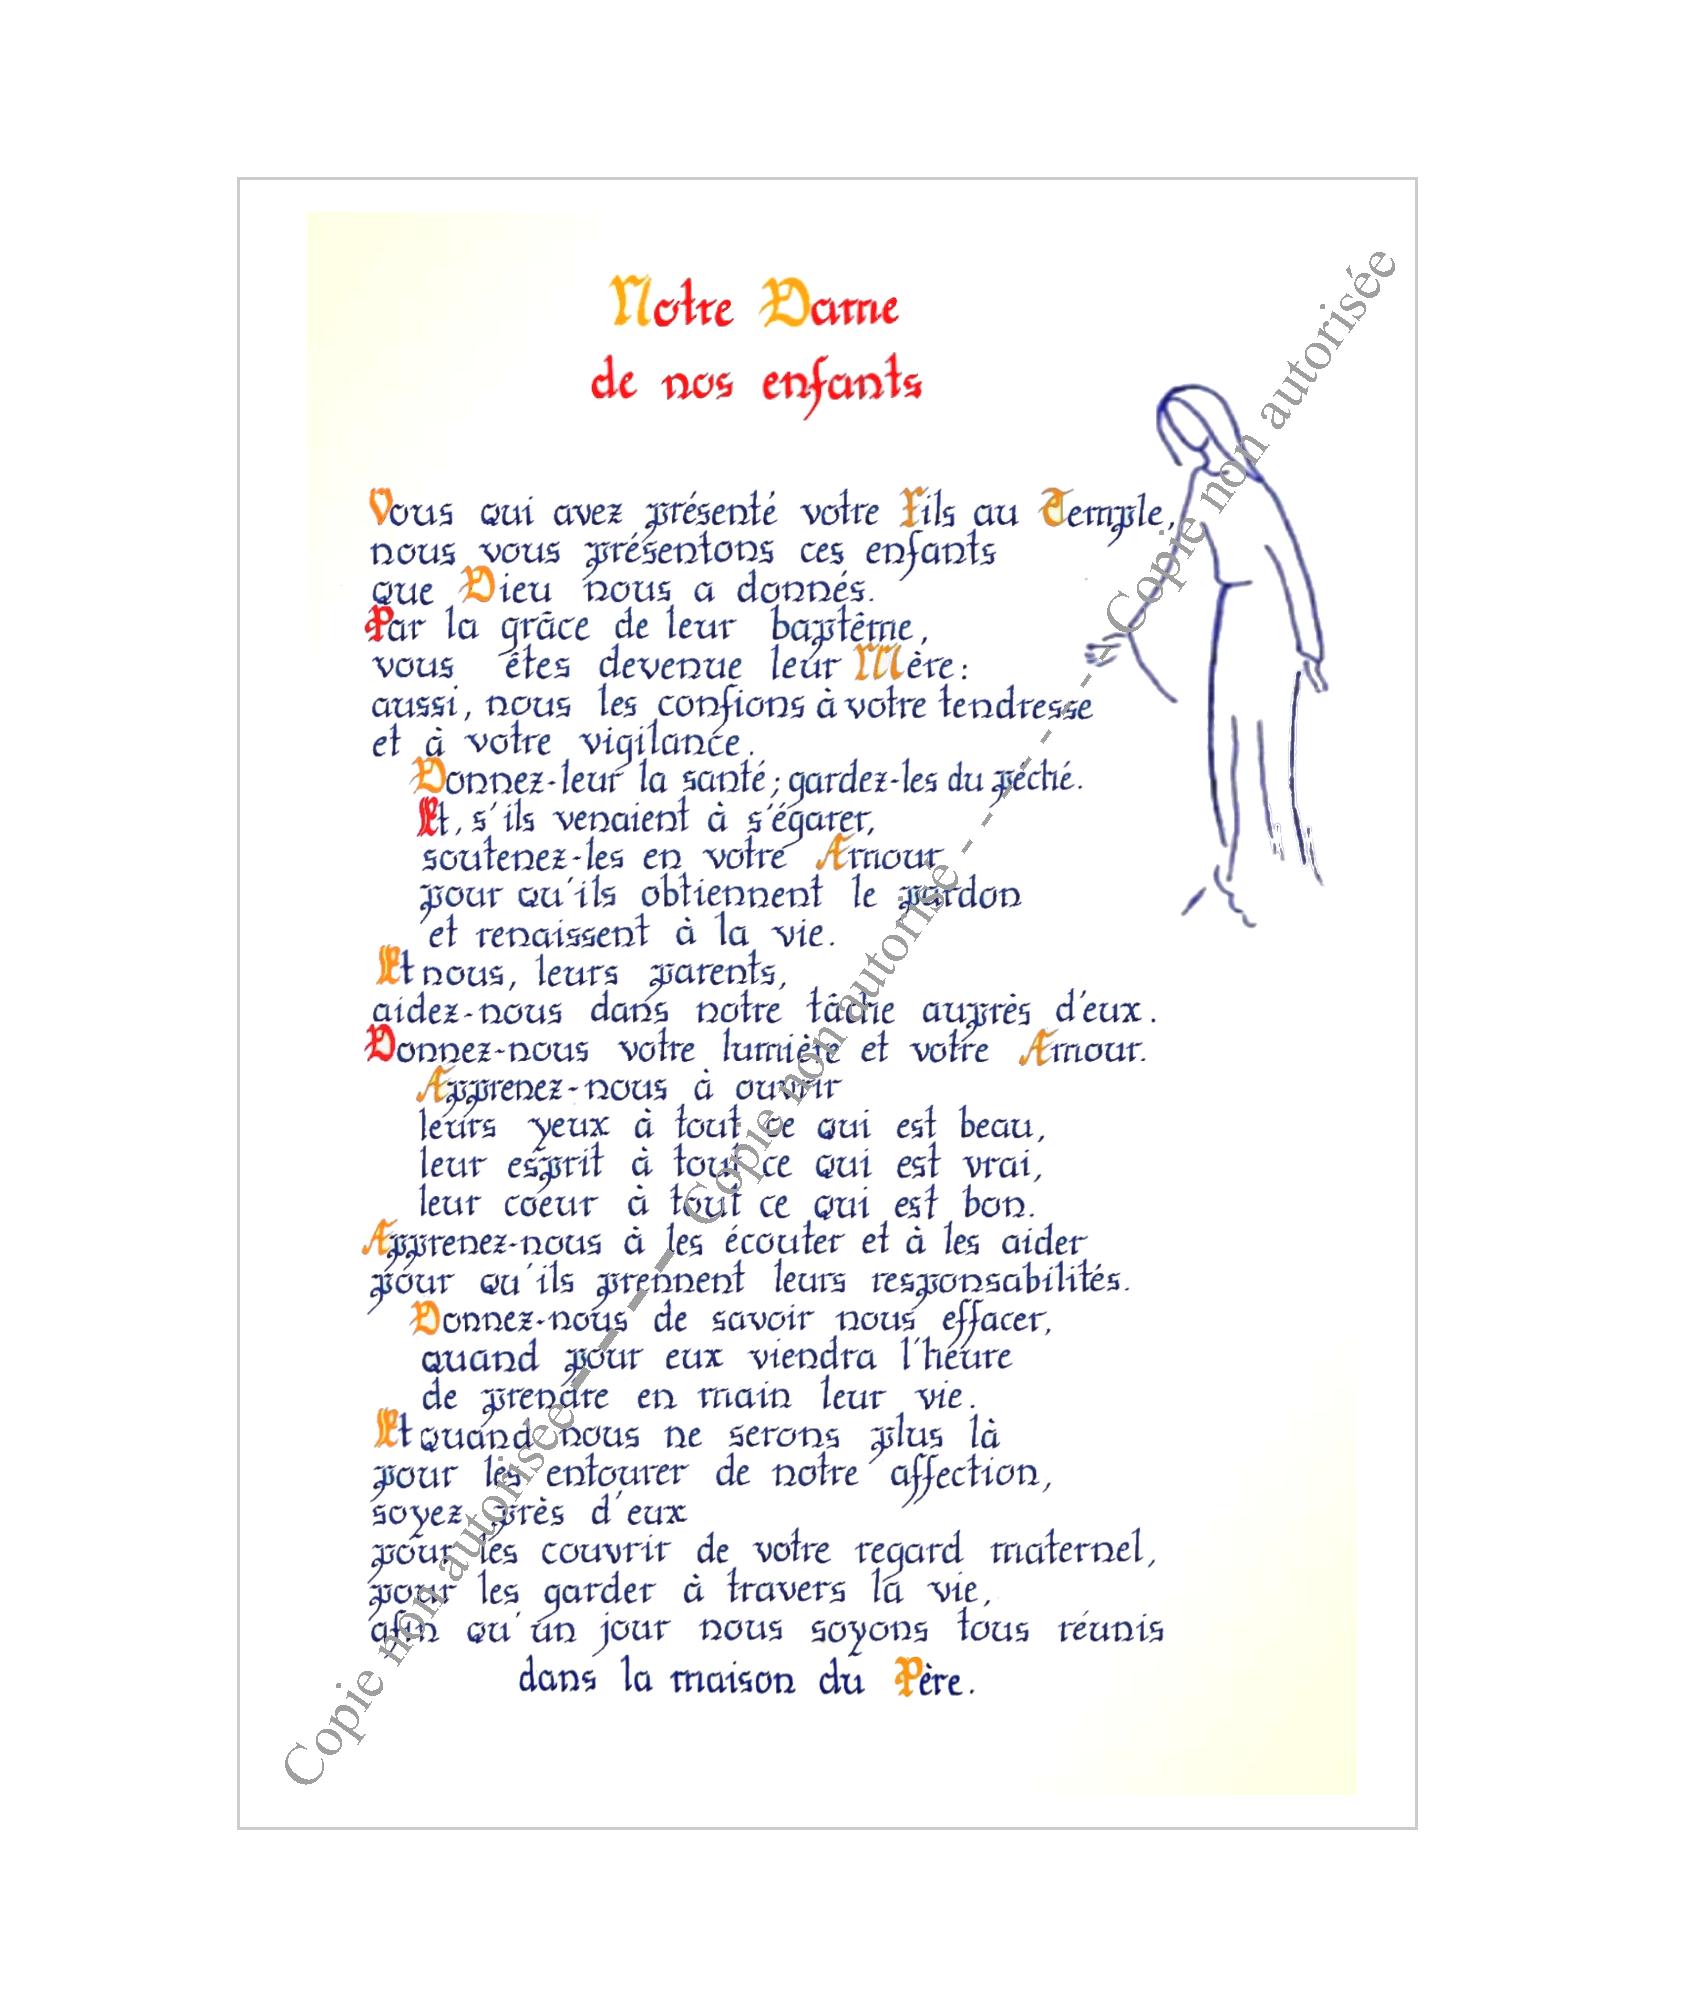 Notre Dame
de nos enfants
Vous qui avez présenté votre Fils au Temple,
nous vous présentons ces enfants
que Dieu nous a donnés.
Par la grâce de leur baptême,
vous êtes devenue leur Mère :
aussi, nous les confions à votre tendresse
et à votre vigilance.
Donnez-leur la santé ; gardez-les du péché.
Et, s'ils venaient à s'égarer,
soutenez-les en votre Amour
pour qu'ils obtiennent le pardon
et renaissent à la vie.
Et nous, leurs parents,
aidez-nous dans notre tâche auprès d'eux.
Donnez-nous votre lumière et votre Amour.
Apprenez-nous à ouvrir
leurs yeux à tout ce qui est beau,
leur esprit à tout ce qui est vrai,
leur coeur à tout ce qui est bon.
Apprenez-nous à les écouter et à les aider
pour qu'ils prennent leurs responsabilités.
Donnez-nous de savoir nous effacer,
quand pour eux viendra l'heure
de prendre en main leur vie.
Et quand nous ne serons plus là
pour les entourer de notre affection,
soyez près d'eux
pour les couvrir de votre regard maternel,
pour les garder à travers la vie,
afin qu'un jour nous soyons tous réunis
dans la maison du Père.
Copie non autorisée - - - - Copie non autorisé - - - - Copie non autorisée